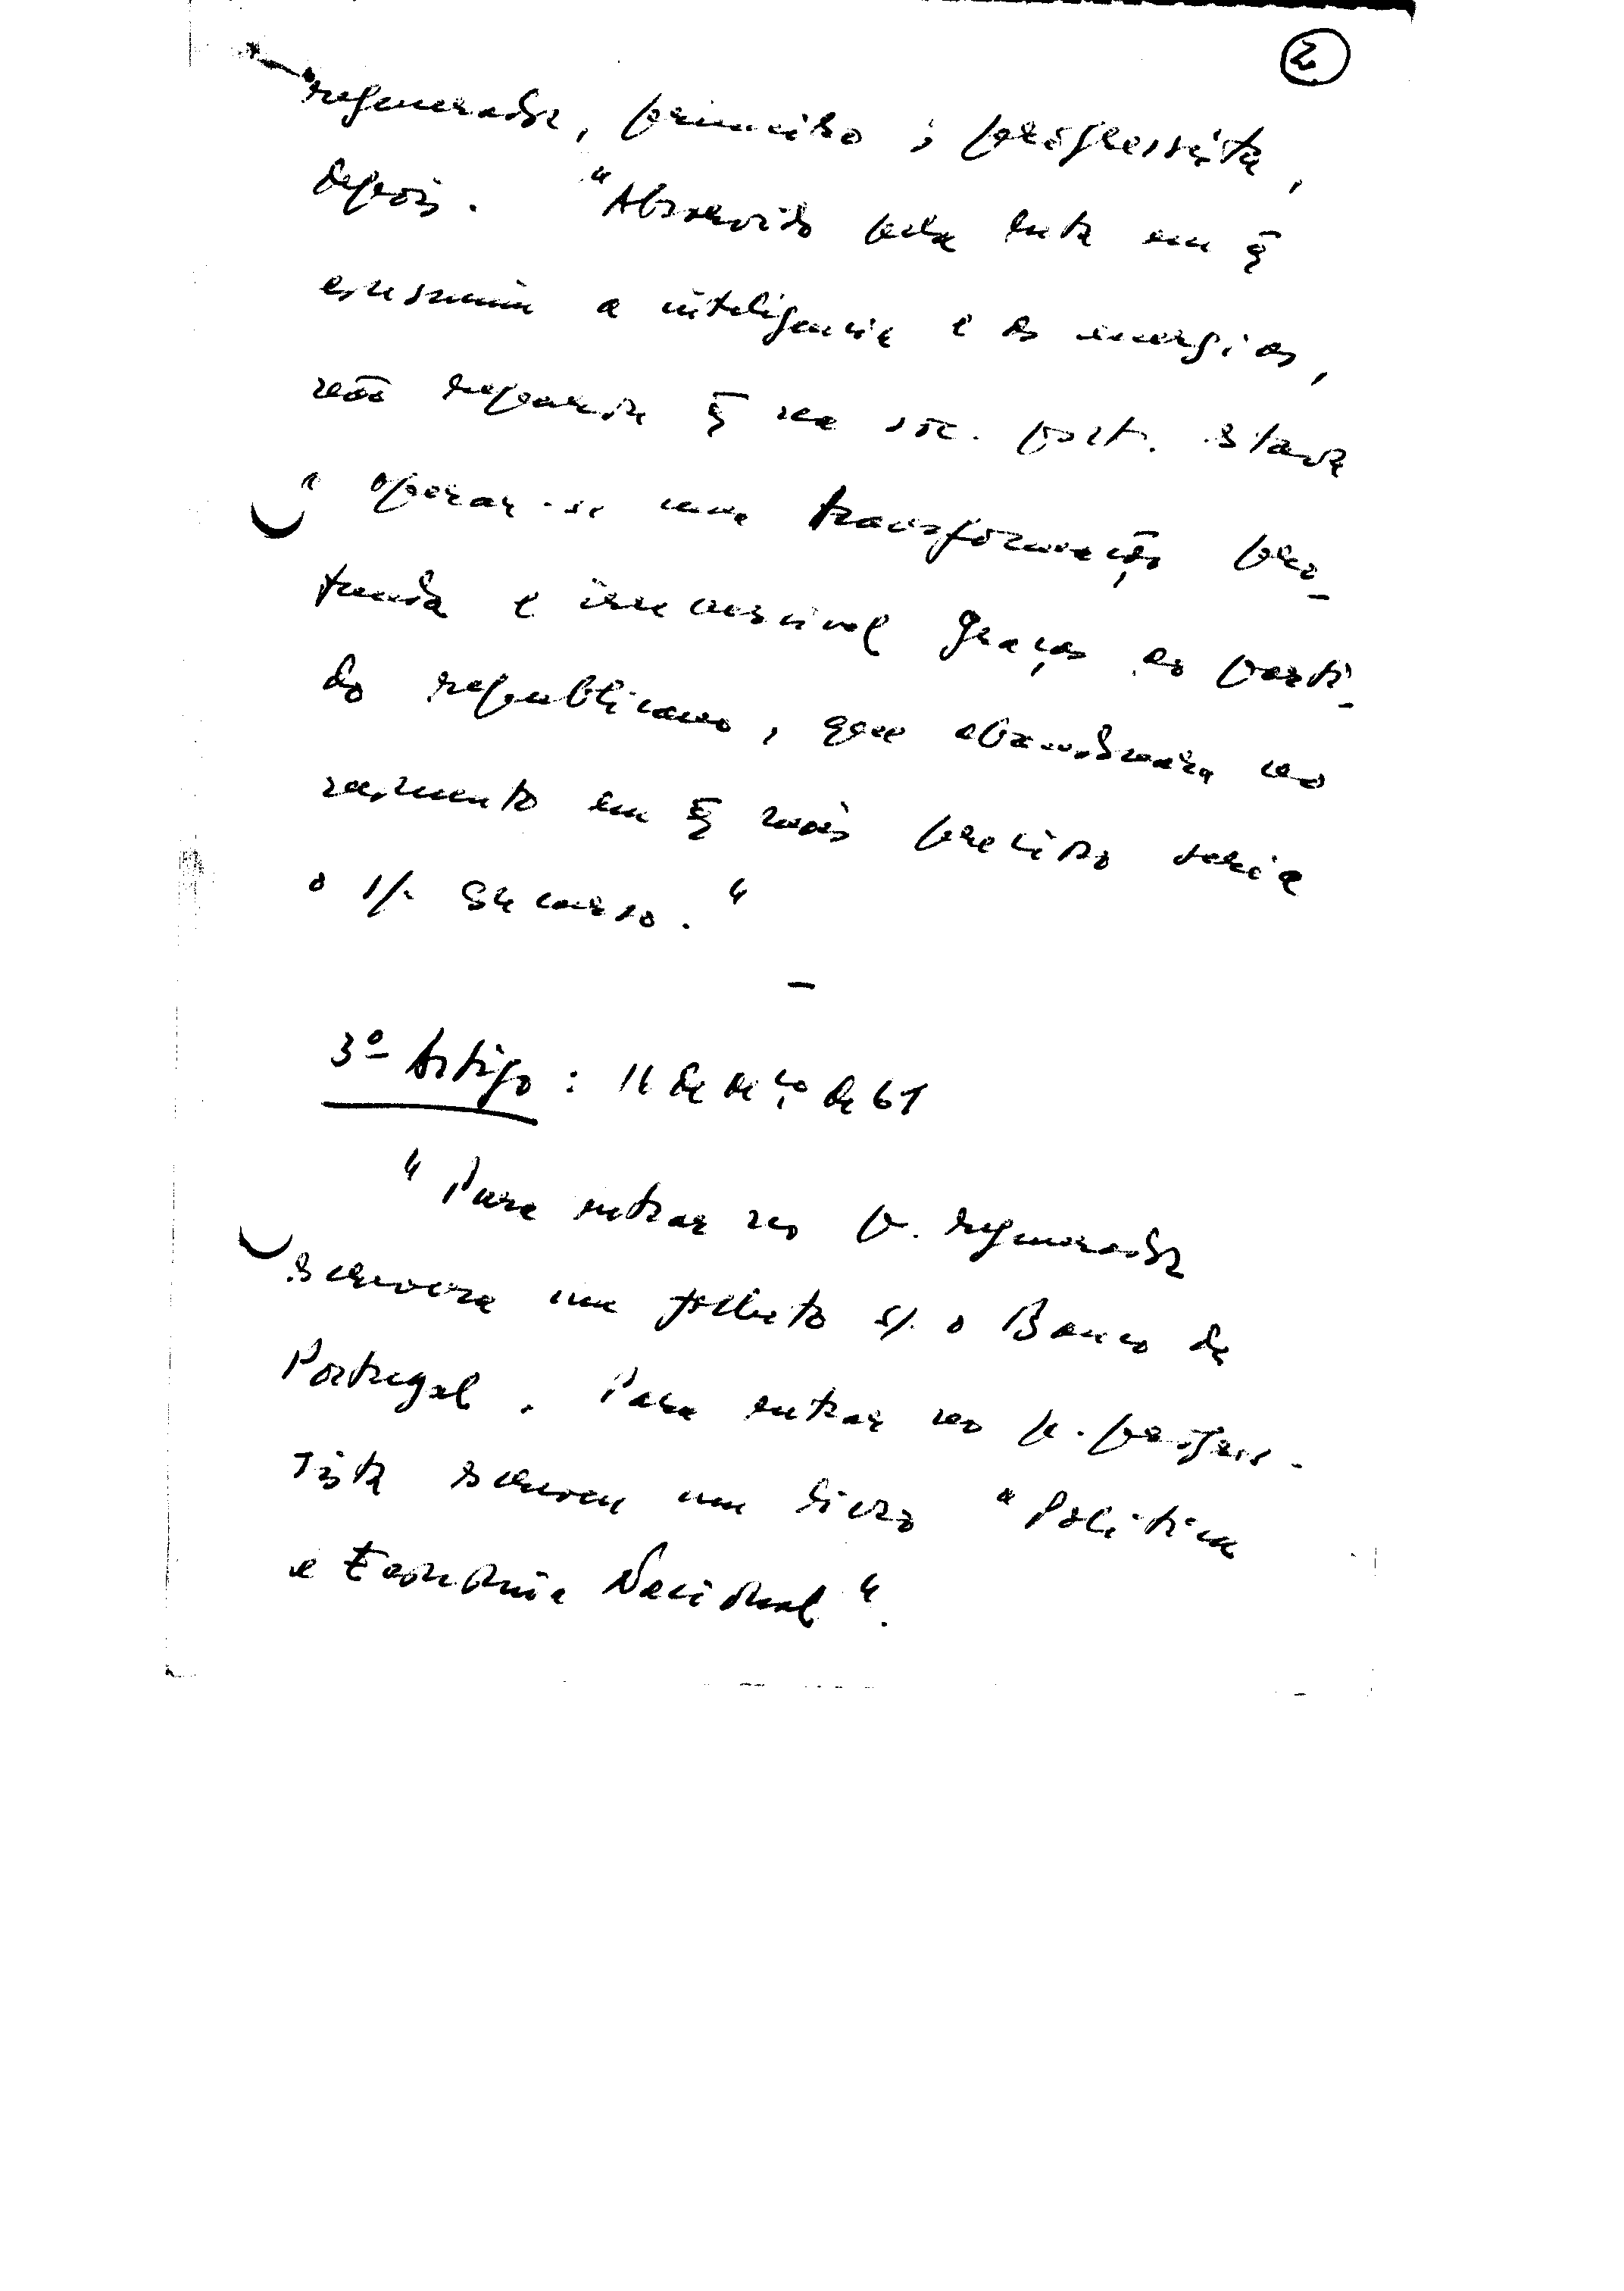 2
regenerador, primeiro; progressista,
depois. "Absorvido pela luta em q̄
consumia a inteligencia e as energias,
não reparou q̄ na soc. port. estava
a operar-se uma transformação pro-
funda e irreversível graças ao parti-
do republicano, que abandonara no
momento em q̄ mais preciso seria
o s/. concurso."
–
3º Artigo: 11 de deçº de 61
"Para entrar no p. regenerador
escrevera um folheto s/. o Banco de
Portugal. Para entrar no p. progres-
sista escreveu um livro "Politica
e Economia Nacional".